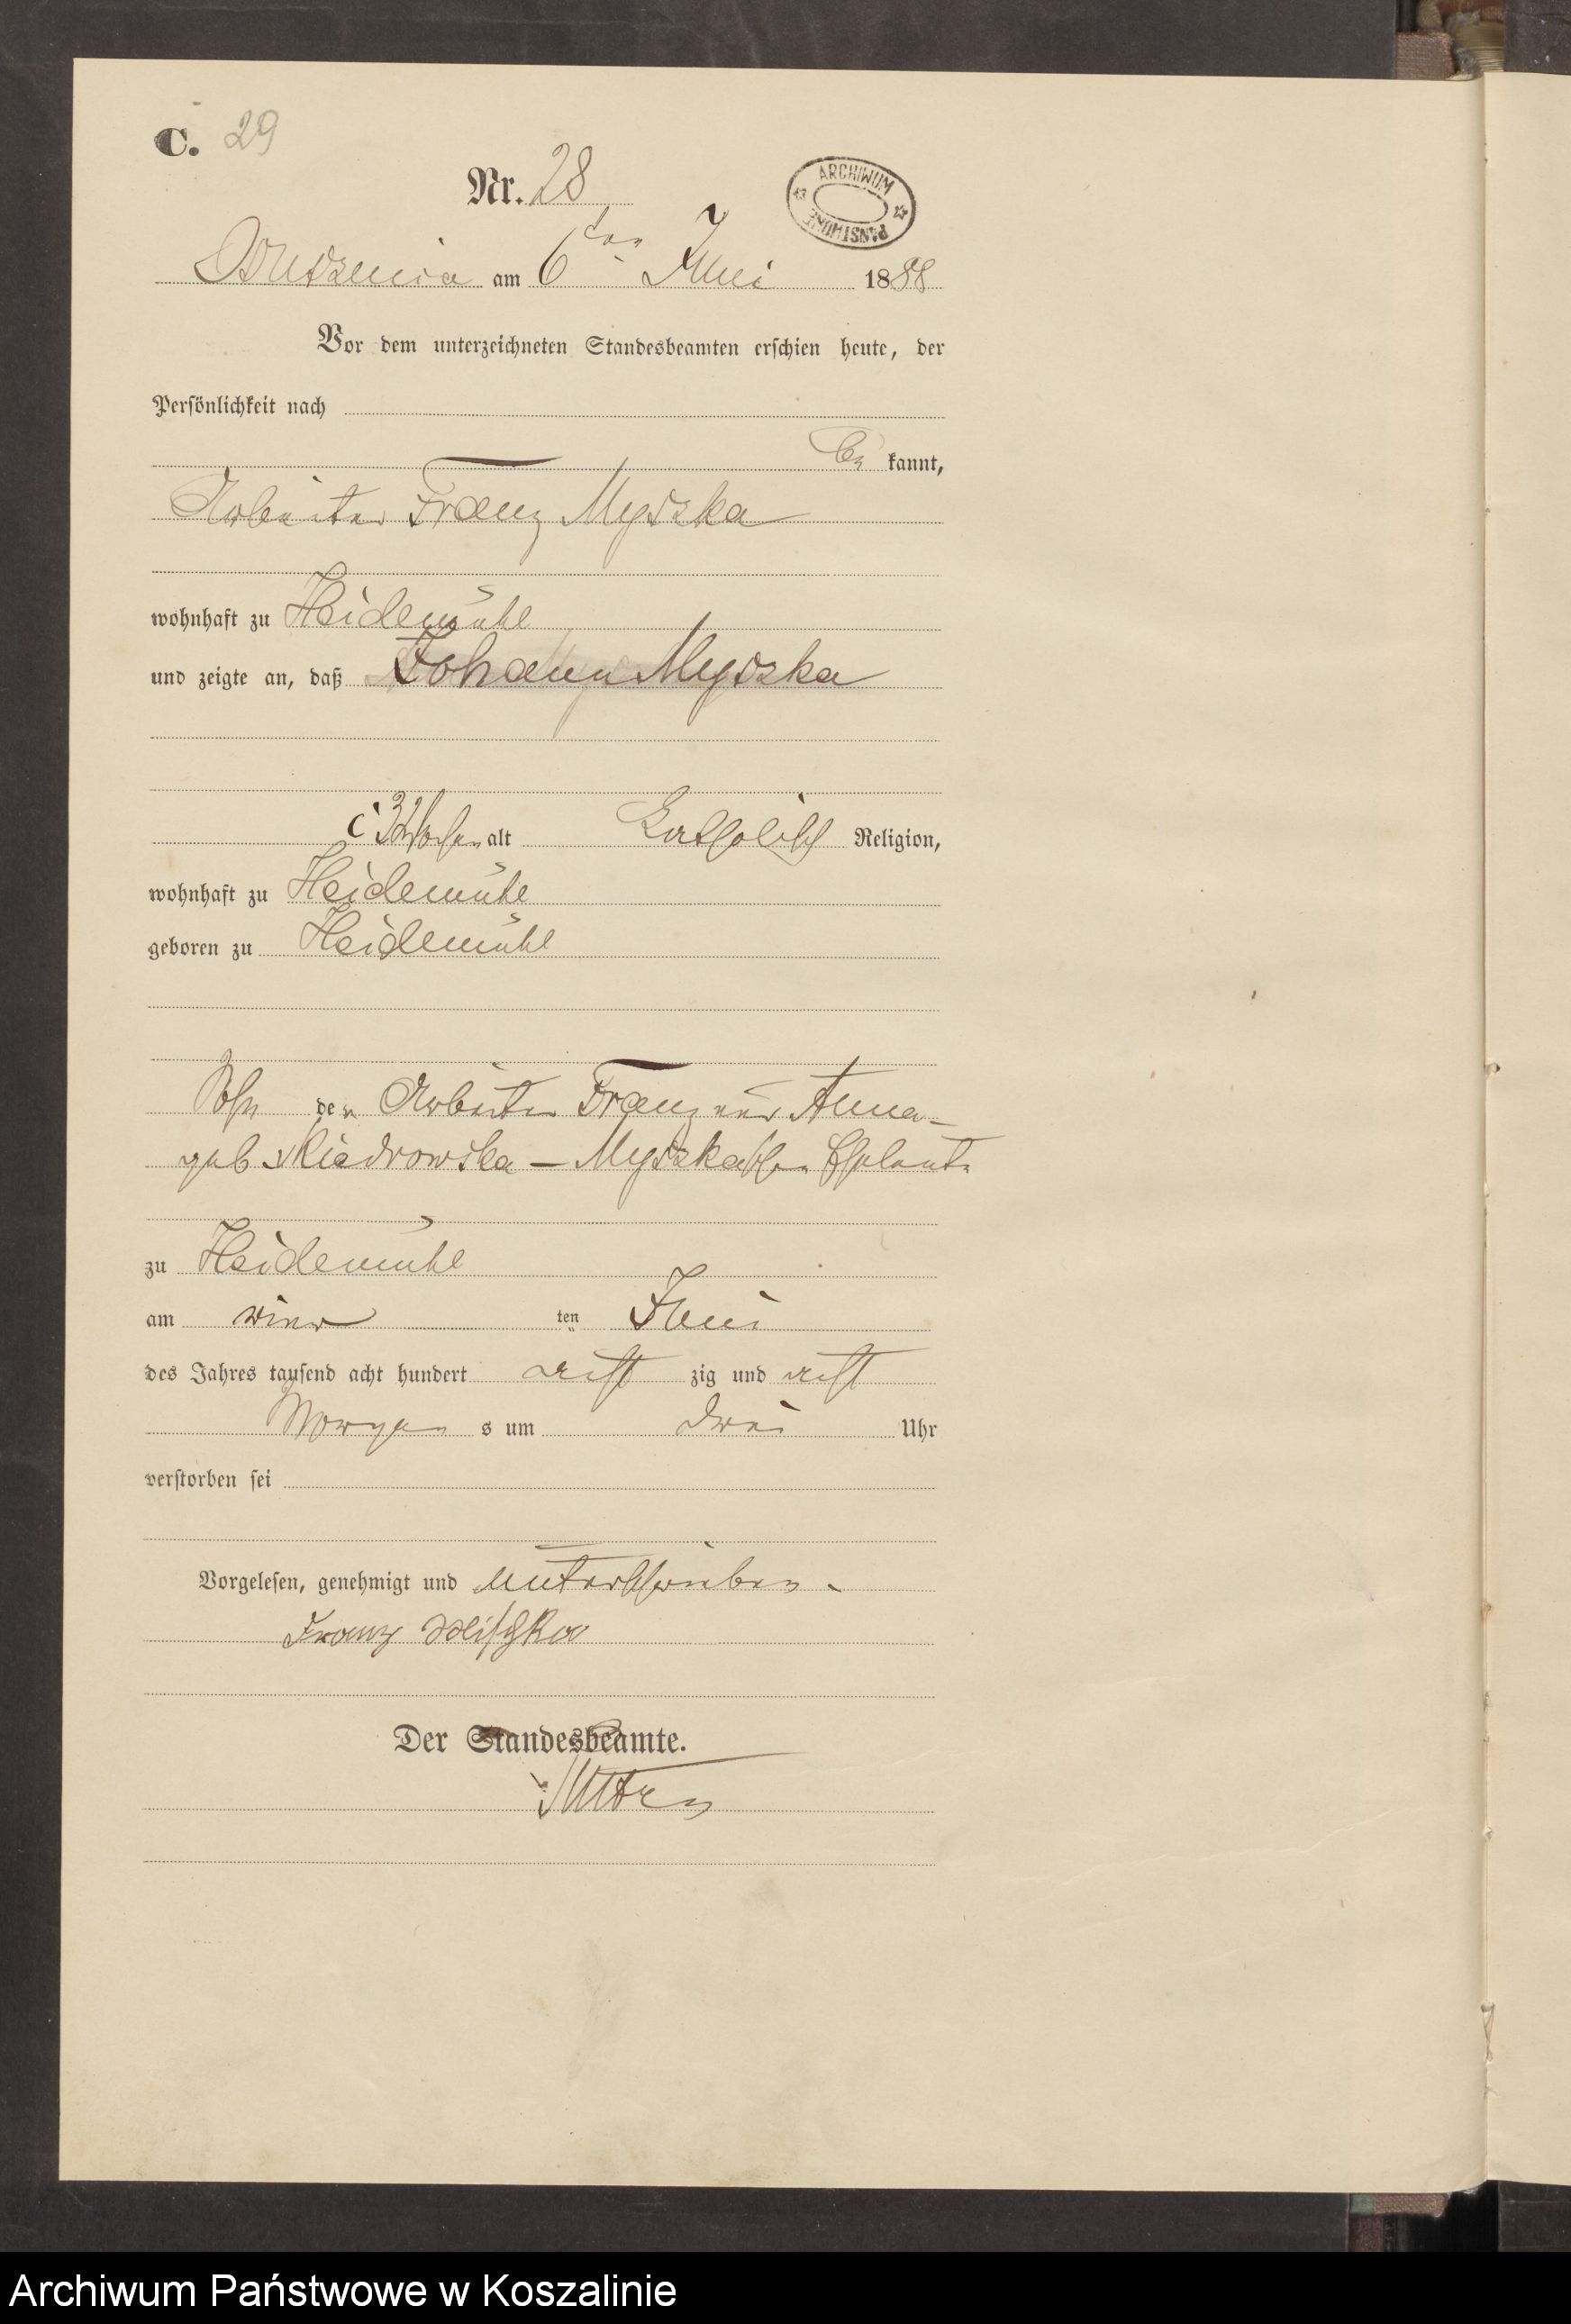 C. 29
Nr. 28
ARCHIWUM PAŃSTWOWE
am 6ten Juni 1888
Vor dem unterzeichneten Standesbeamten erschien heute, der
Persönlichkeit nach
be kannt,
Arbeiter Franz Myszka
wohnhaft zu Heidemühl
und zeigte an, daß Johann Myszka
3 Wochen alt katholisch Religion,
wohnhaft zu Heidemühl
geboren zu Heidemühl
Sohn der Arbeiter Franz und Anna
geb Myszkaschen Eheleute
zu Heidemühl
am vier ten Juni
des Jahres tausend acht hundert acht zig und acht
Morgen s um drei Uhr
verstorben sei
Vorgelesen, genehmigt und unterschrieben
Franz Mischka
Der Standesbeamte.
Archiwum Państwowe w Koszalinie